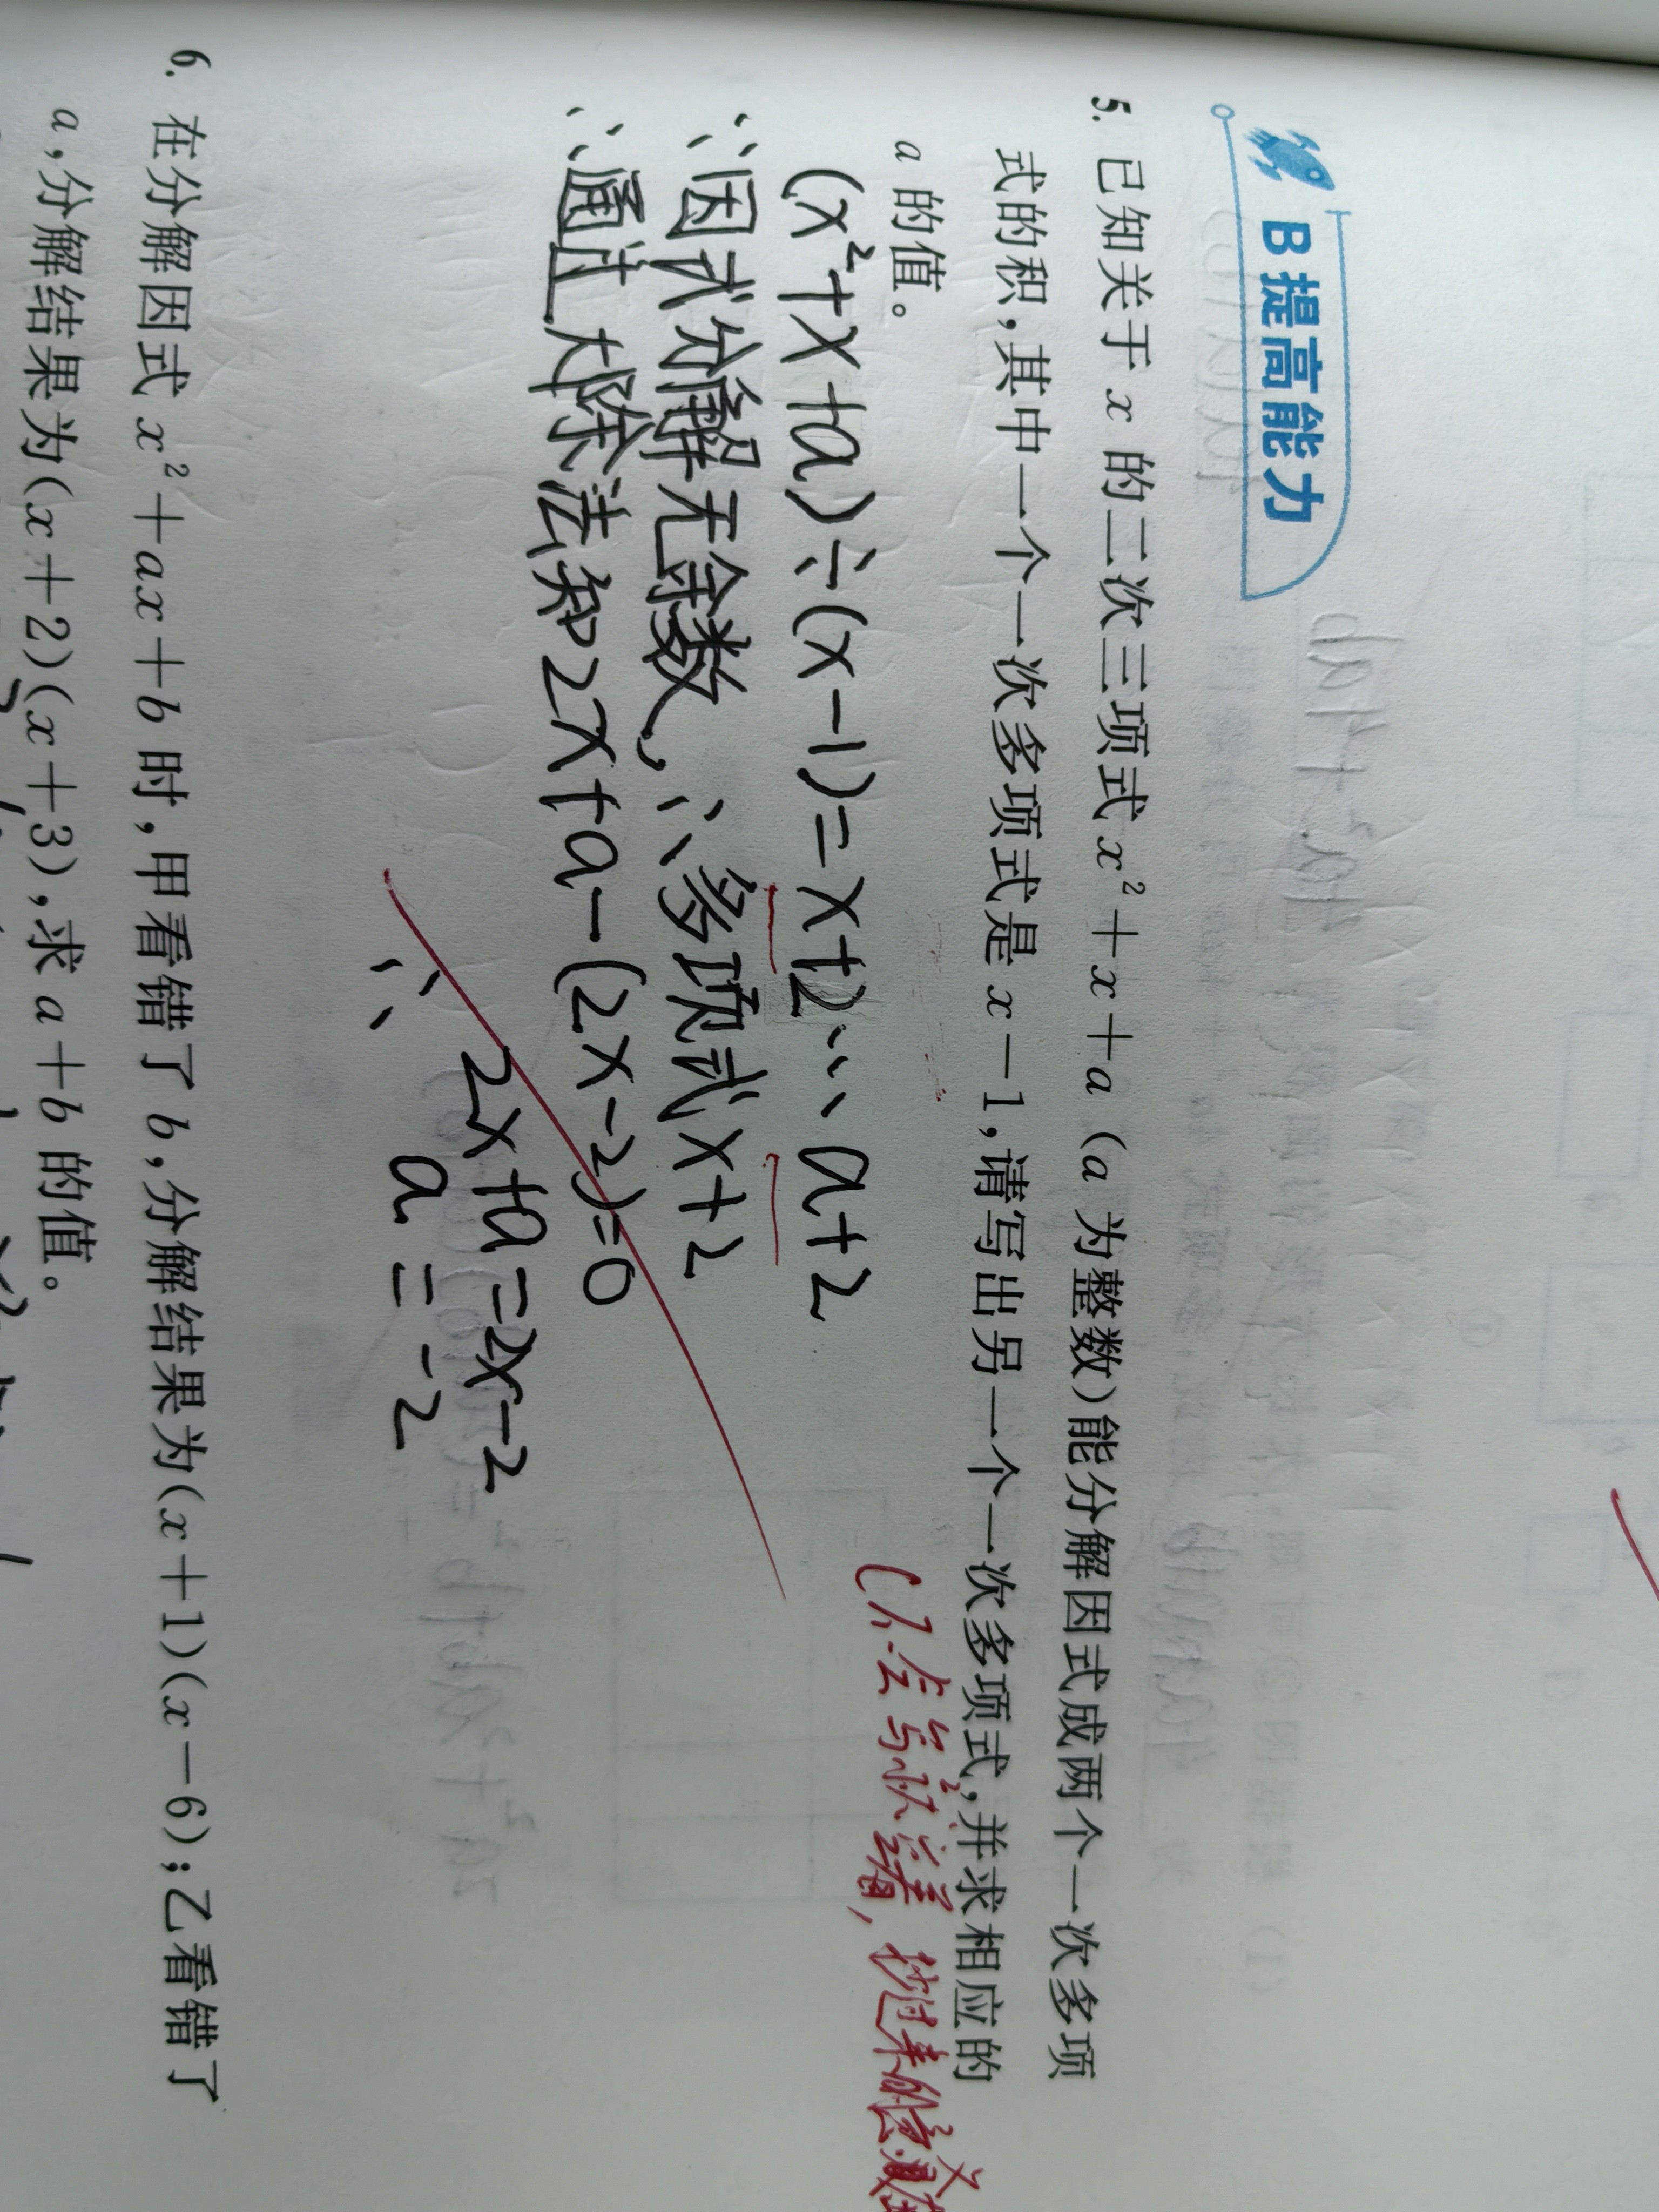 B 提高能力
5. 已知关于 x 的二次三项式 x²+x+a (a 为整数)能分解因式成两个一次多项
式的积,其中一个一次多项式是 x-1,请写出另一个一次多项式,并求相应的
a 的值。
(x²+x+a)÷(x-1)=x+2…a+2
∵因式分解无余数,∴多项式x+2
∵通过大除法知2x+a-(2x-2)=0
2x+a=2x-2
∴ a=-2
6. 在分解因式 x²+ax+b 时,甲看错了 b,分解结果为(x+1)(x-6);乙看错了
a,分解结果为(x+2)(x+3),求 a+b 的值。